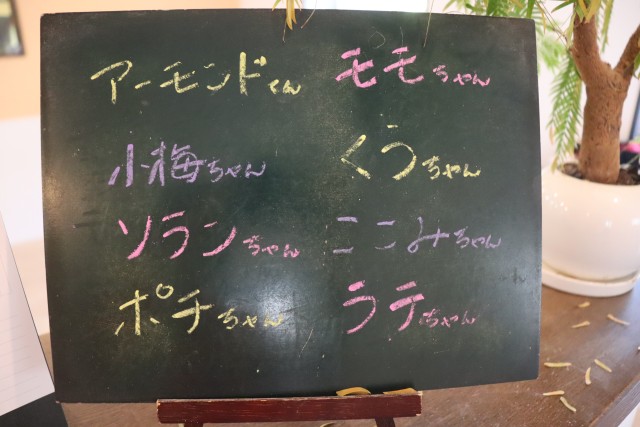 アーモンドくん モモちゃん
小梅ちゃん くうちゃん
ソランちゃん ここみちゃん
ポチちゃん ラテちゃん